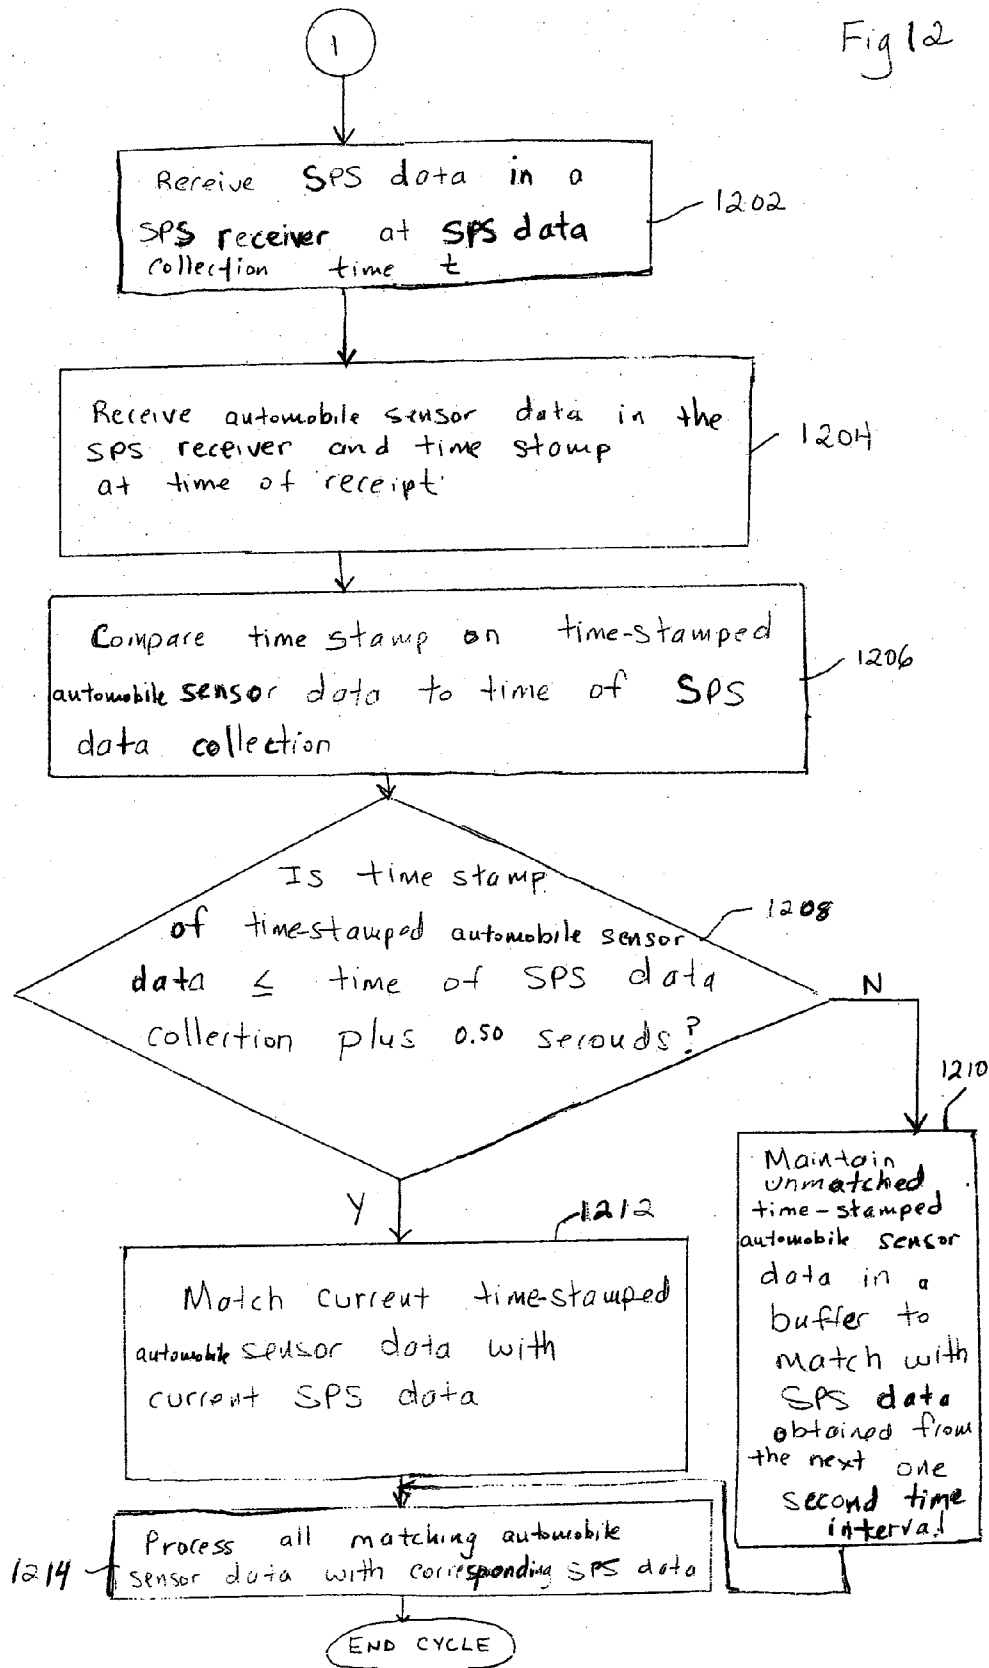 Fig 12
1
Receive SPS data in a
SPS receiver at SPS data
collection time t
1202
Receive automobile sensor data in the
SPS receiver and time stamp
at time of receipt
1204
Compare time stamp on time-stamped
automobile sensor data to time of SPS
data collection
1206
Is time stamp
of time-stamped automobile sensor
data ≤ time of SPS data
collection plus 0.50 seconds?
1208
N
Y
1210
Maintain
unmatched
time-stamped
automobile sensor
data in a
buffer to
match with
SPS data
obtained from
the next one
second time
interval
1212
Match current time-stamped
automobile sensor data with
current SPS data
Process all matching automobile
sensor data with corresponding SPS data
1214
END CYCLE